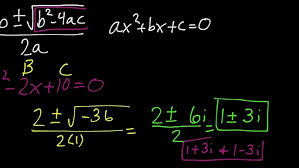 ± √b²-4ac
2a
ax²+bx+c=0
B C
²-2x+10=0
2 ± √-36 / 2(1) = 2 ± 6i / 2 = 1 ± 3i
1+3i + 1-3i